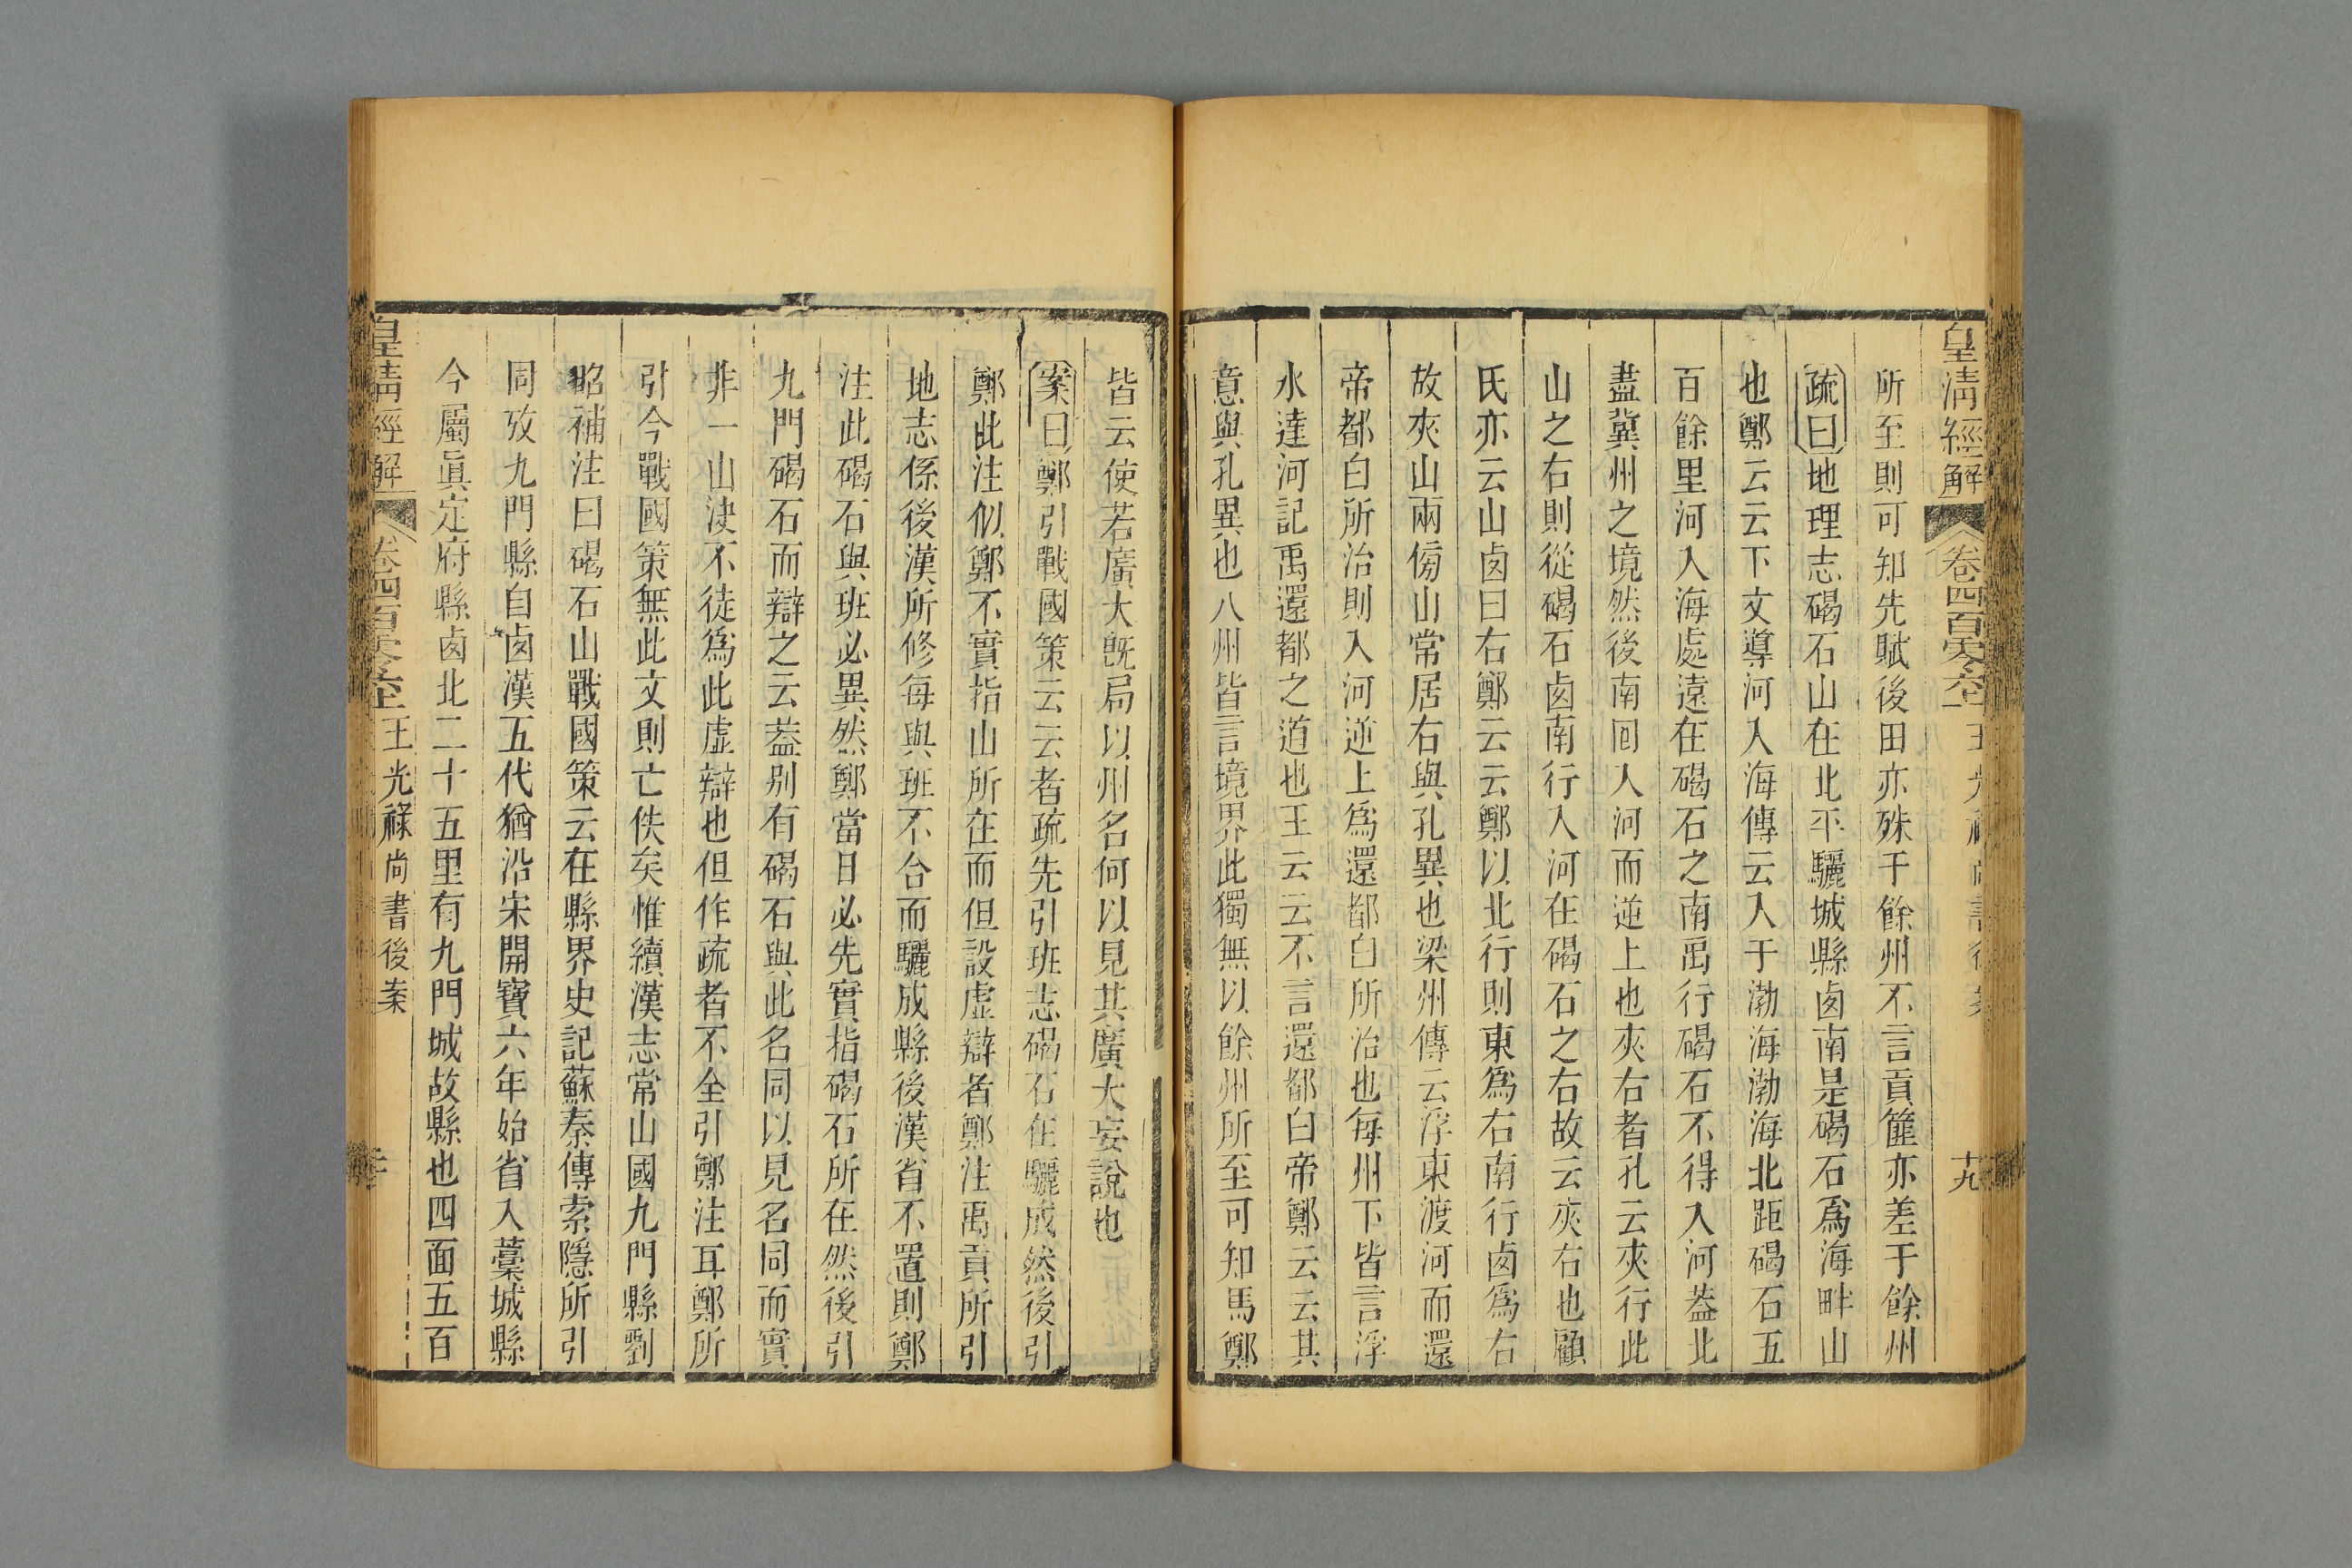 皇清經解 卷四百零六上 王光祿尚書後案 十九
所至則可知先賦後田亦殊于餘州不言貢篚亦差于餘州
疏曰地理志碣石山在北平驪城縣卤南是碣石爲海畔山
也鄭云云下文導河入海傳云入于渤海渤海北距碣石五
百餘里河入海處遠在碣石之南禹行碣石不得入河葢北
盡冀州之境然後南囘入河而逆上也夾右者孔云夾行此
山之右則從碣石卤南行入河在碣石之右故云夾右也顧
氏亦云山卤曰右鄭云云鄭以北行則東爲右南行卤爲右
故夾山兩傍山常居右與孔異也梁州傳云浮東渡河而還
帝都白所治則入河逆上爲還都白所治也每州下皆言浮
水達河記禹還都之道也王云云不言還都白帝鄭云云其
意與孔異也八州皆言境界此獨無以餘州所至可知馬鄭
皆云使若廣大旣局以州名何以見其廣大妄說也
案曰鄭引戰國策云云者疏先引班志碣石在驪成然後引
鄭此注似鄭不實指山所在而但設虛辯者鄭注禹貢所引
地志係後漢所修每與班不合而驪成縣後漢省不置則鄭
注此碣石與班必異然鄭當日必先實指碣石所在然後引
九門碣石而辯之云葢别有碣石與此名同以見名同而實
非一山決不徒爲此虛辯也但作疏者不全引鄭注耳鄭所
引今戰國策無此文則亡佚矣惟續漢志常山國九門縣劉
昭補注曰碣石山戰國策云在縣界史記蘇秦傳索隱所引
同攷九門縣自卤漢五代猶沿宋開寶六年始省入藁城縣
今屬眞定府縣卤北二十五里有九門城故縣也四面五百
皇清經解 卷四百零六上 王光祿尚書後案 二十